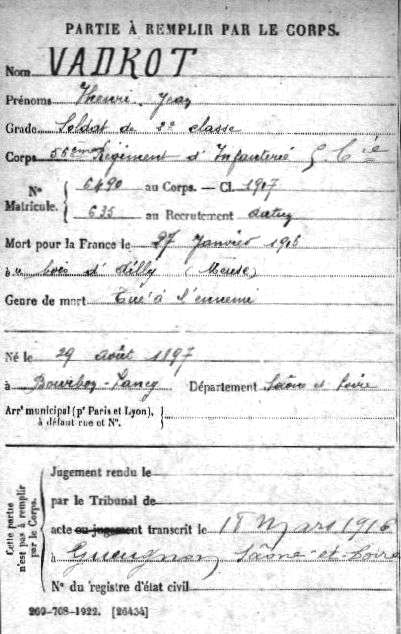 PARTIE À REMPLIR PAR LE CORPS.
Nom VADKOT
Prénoms Henri Jean
Grade Soldat de 2e classe
Corps 56ème Régiment d'Infanterie Cie
N° Matricule. { 6490 au Corps. — Cl. 1917
635 au Recrutement Autun
Mort pour la France le 27 Janvier 1916
à u bois d'Ailly (Meuse)
Genre de mort Tué à l'ennemi
Né le 29 août 1897
à Bourbon-Lancy Département Saône et Loire
Arrt municipal (pr Paris et Lyon), à défaut rue et N°.
Cette partie n'est pas à remplir par le Corps.
Jugement rendu le
par le Tribunal de
acte ou jugement transcrit le 18 Mars 1916
à Gueugnon, Saône-et-Loire
N° du registre d'état civil
269-708-1922. [26434]